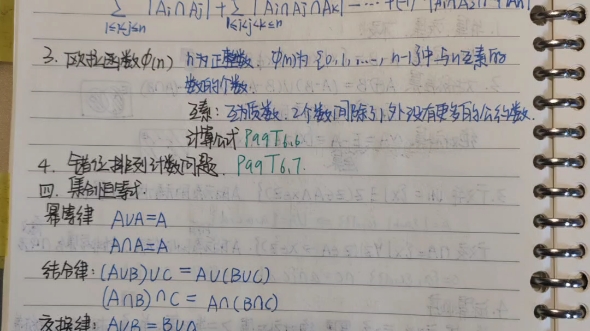 Σ |Ai∩Aj| + Σ |Ai∩Aj∩Ak| - ... +(-1)
1≤i<j≤n 1≤i<j<k≤n
3. 欧拉函数φ(n) n为正整数. φ(n)为{0,1,...,n-1}中与n互素的
数的个数.
互素: 互为质数. 2个数间除了1外没有更多的公约数.
计算公式 P99T6.6
4. 错位排列计数问题. P99T6.7.
四. 集合恒等式.
幂等律 A∪A=A
A∩A=A
结合律: (A∪B)∪C = A∪(B∪C)
(A∩B)∩C = A∩(B∩C)
交换律: A∪B = B∪A